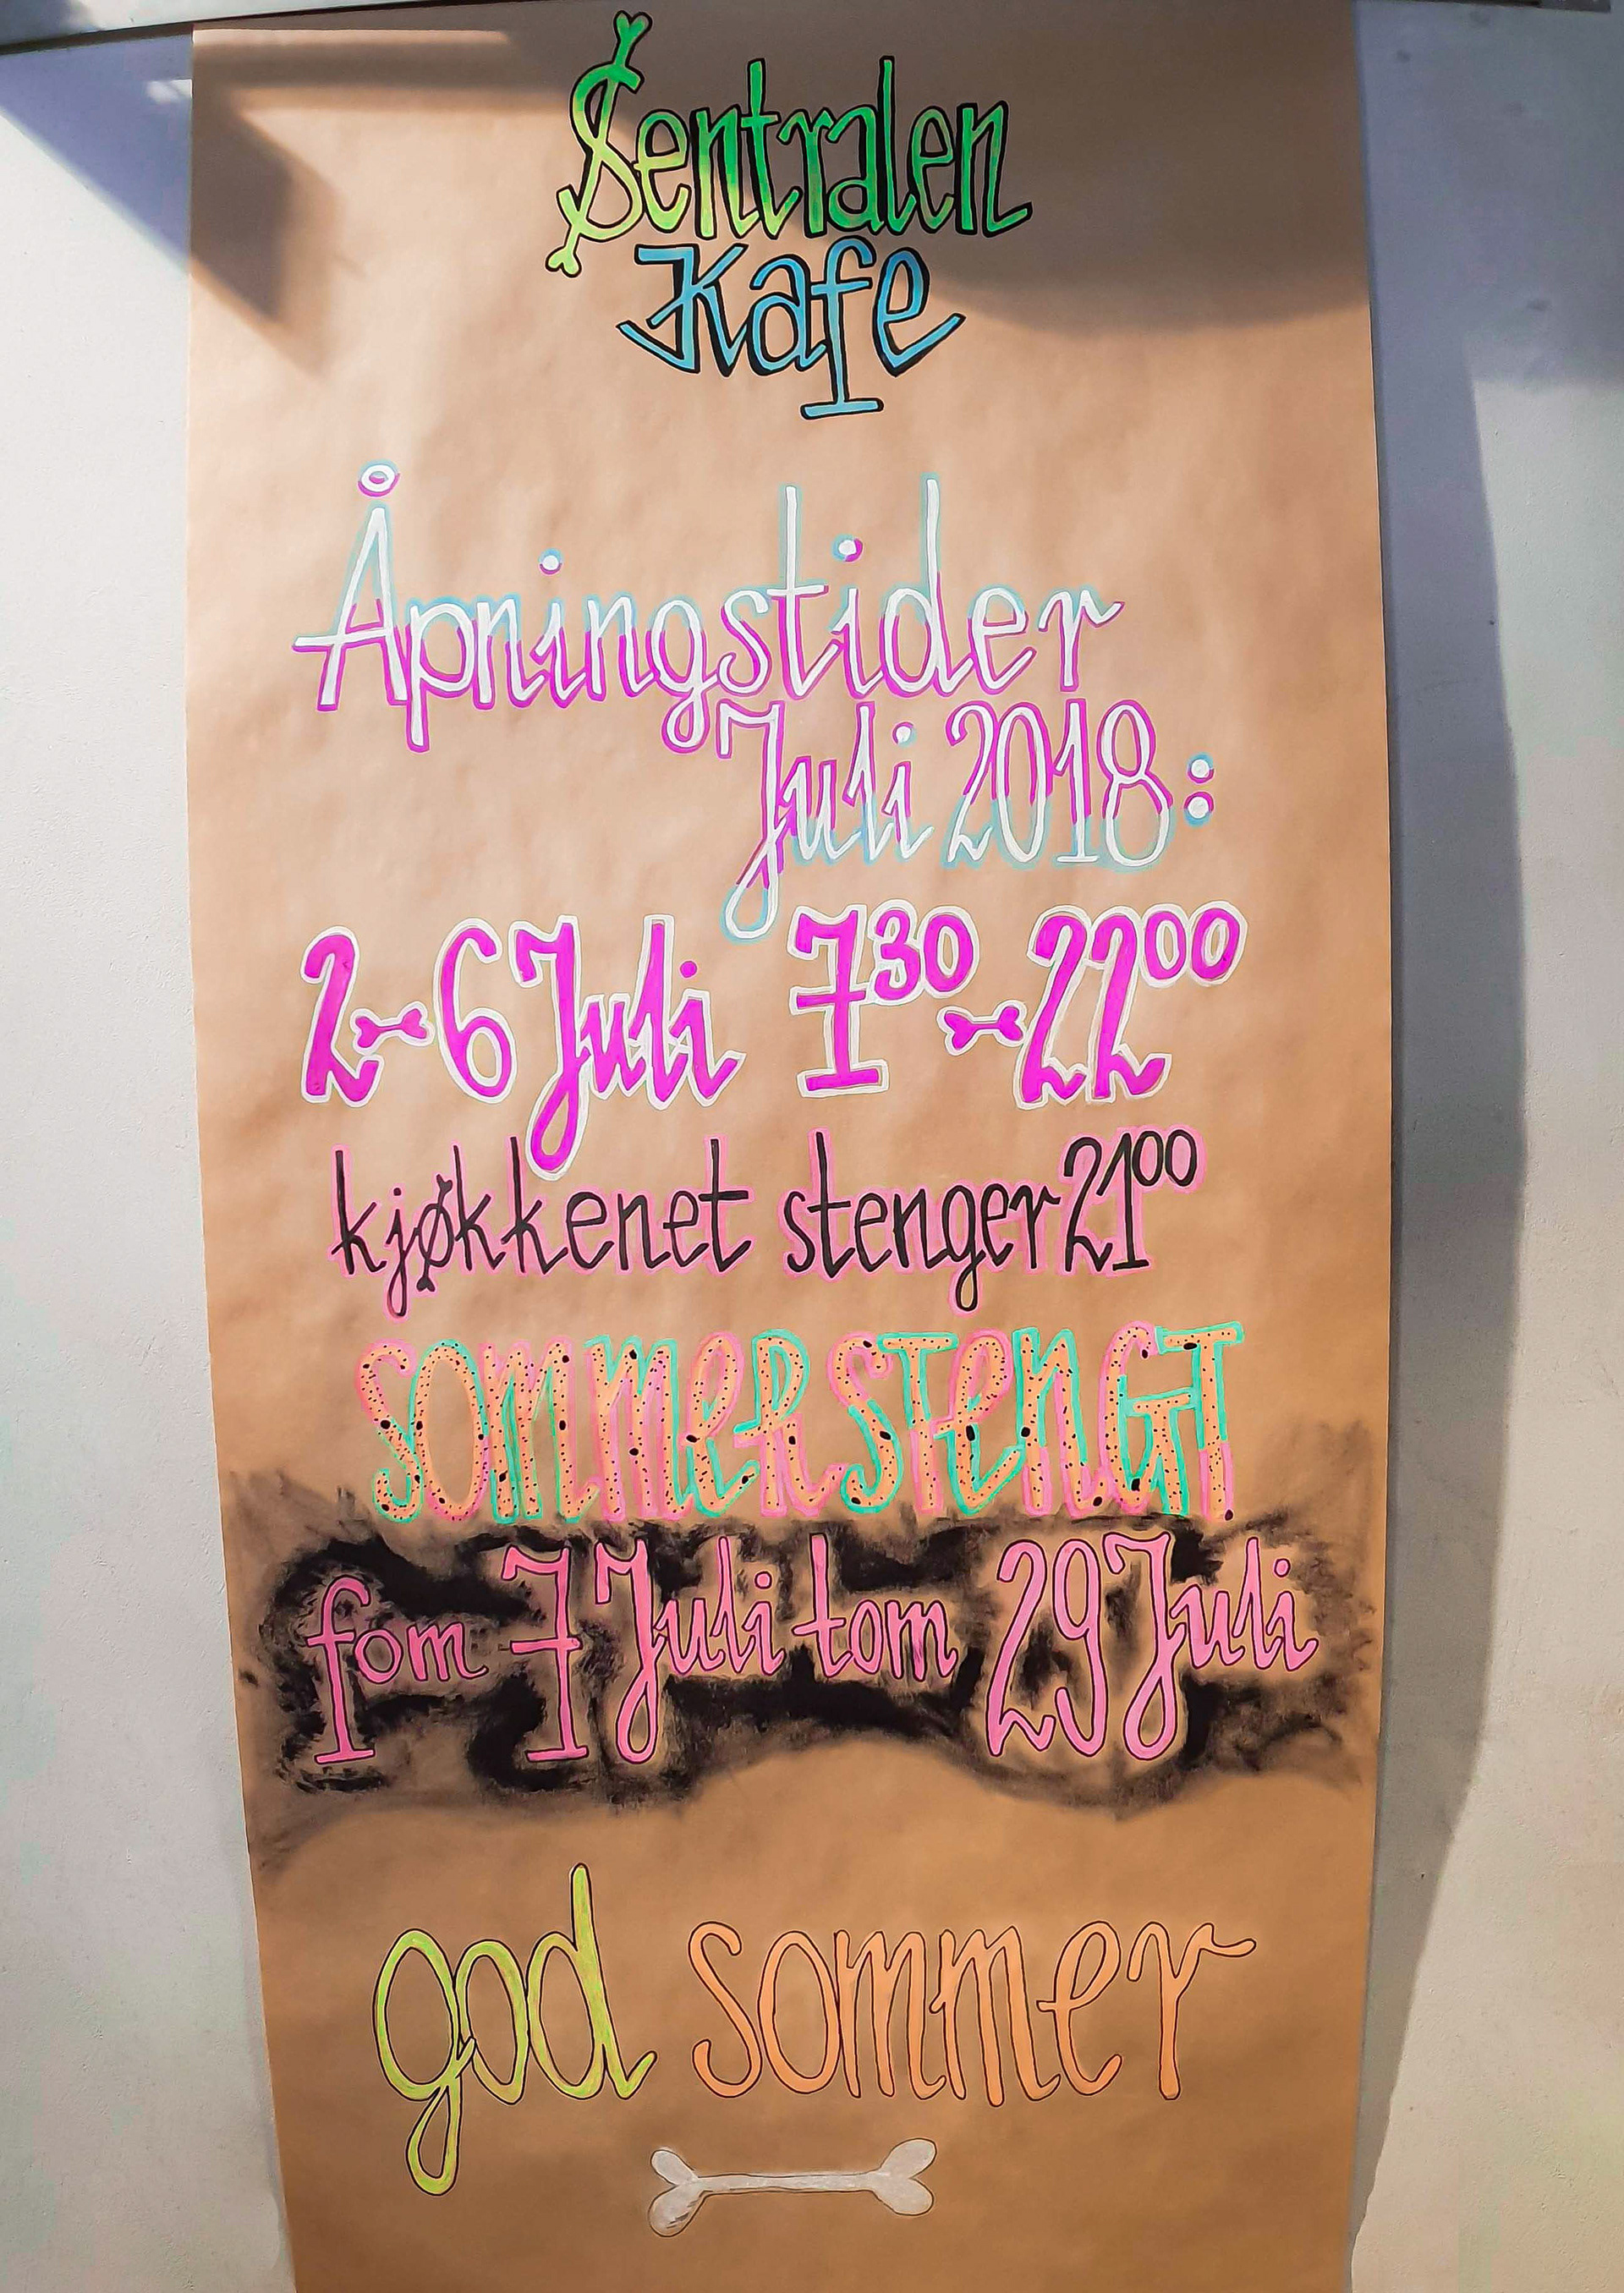 Sentralen
Kafe
Åpningstider
Juli 2018:
2-6 Juli 7³⁰-22⁰⁰
kjøkkenet stenger 21⁰⁰
SOMMERSTENGT
fom 7 Juli tom 29 Juli
god sommer